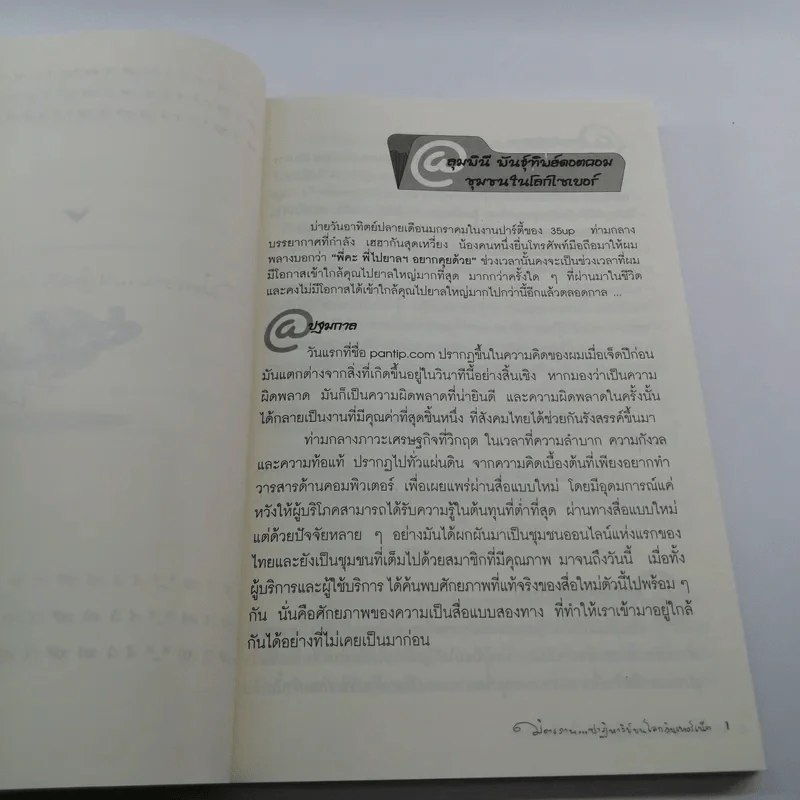 @ลุมพินี พันธุ์ทิพย์ดอตคอม
ชุมชนในโลกไซเบอร์
บ่ายวันอาทิตย์ปลายเดือนมกราคมในงานปาร์ตี้ของ 35up ท่ามกลาง
บรรยากาศที่กำลัง เฮฮากันสุดเหวี่ยง น้องคนหนึ่งยื่นโทรศัพท์มือถือมาให้ผม
พลางบอกว่า "พี่คะ พี่ไปยาลฯ อยากคุยด้วย" ช่วงเวลานั้นคงจะเป็นช่วงเวลาที่ผม
มีโอกาสเข้าใกล้คุณไปยาลใหญ่มากที่สุด มากกว่าครั้งใด ๆ ที่ผ่านมาในชีวิต
และคงไม่มีโอกาสได้เข้าใกล้คุณไปยาลใหญ่มากไปกว่านี้อีกแล้วตลอดกาล ...
@ปฐมกาล
วันแรกที่ชื่อ pantip.com ปรากฏขึ้นในความคิดของผมเมื่อเจ็ดปีก่อน
มันแตกต่างจากสิ่งที่เกิดขึ้นอยู่ในวินาทีนี้อย่างสิ้นเชิง หากมองว่าเป็นความ
ผิดพลาด มันก็เป็นความผิดพลาดที่น่ายินดี และความผิดพลาดในครั้งนั้น
ได้กลายเป็นงานที่มีคุณค่าที่สุดชิ้นหนึ่ง ที่สังคมไทยได้ช่วยกันรังสรรค์ขึ้นมา
ท่ามกลางภาวะเศรษฐกิจที่วิกฤต ในเวลาที่ความลำบาก ความกังวล
และความท้อแท้ ปรากฏไปทั่วแผ่นดิน จากความคิดเบื้องต้นที่เพียงอยากทำ
วารสารด้านคอมพิวเตอร์ เพื่อเผยแพร่ผ่านสื่อแบบใหม่ โดยมีอุดมการณ์แค่
หวังให้ผู้บริโภคสามารถได้รับความรู้ในต้นทุนที่ต่ำที่สุด ผ่านทางสื่อแบบใหม่
แต่ด้วยปัจจัยหลาย ๆ อย่างมันได้ผกผันมาเป็นชุมชนออนไลน์แห่งแรกของ
ไทยและยังเป็นชุมชนที่เต็มไปด้วยสมาชิกที่มีคุณภาพ มาจนถึงวันนี้ เมื่อทั้ง
ผู้บริการและผู้ใช้บริการ ได้ค้นพบศักยภาพที่แท้จริงของสื่อใหม่ตัวนี้ไปพร้อม ๆ
กัน นั่นคือศักยภาพของความเป็นสื่อแบบสองทาง ที่ทำให้เราเข้ามาอยู่ใกล้
กันได้อย่างที่ไม่เคยเป็นมาก่อน
มิตรภาพ...ปาฏิหาริย์บนโลกอินเทอร์เน็ต 1